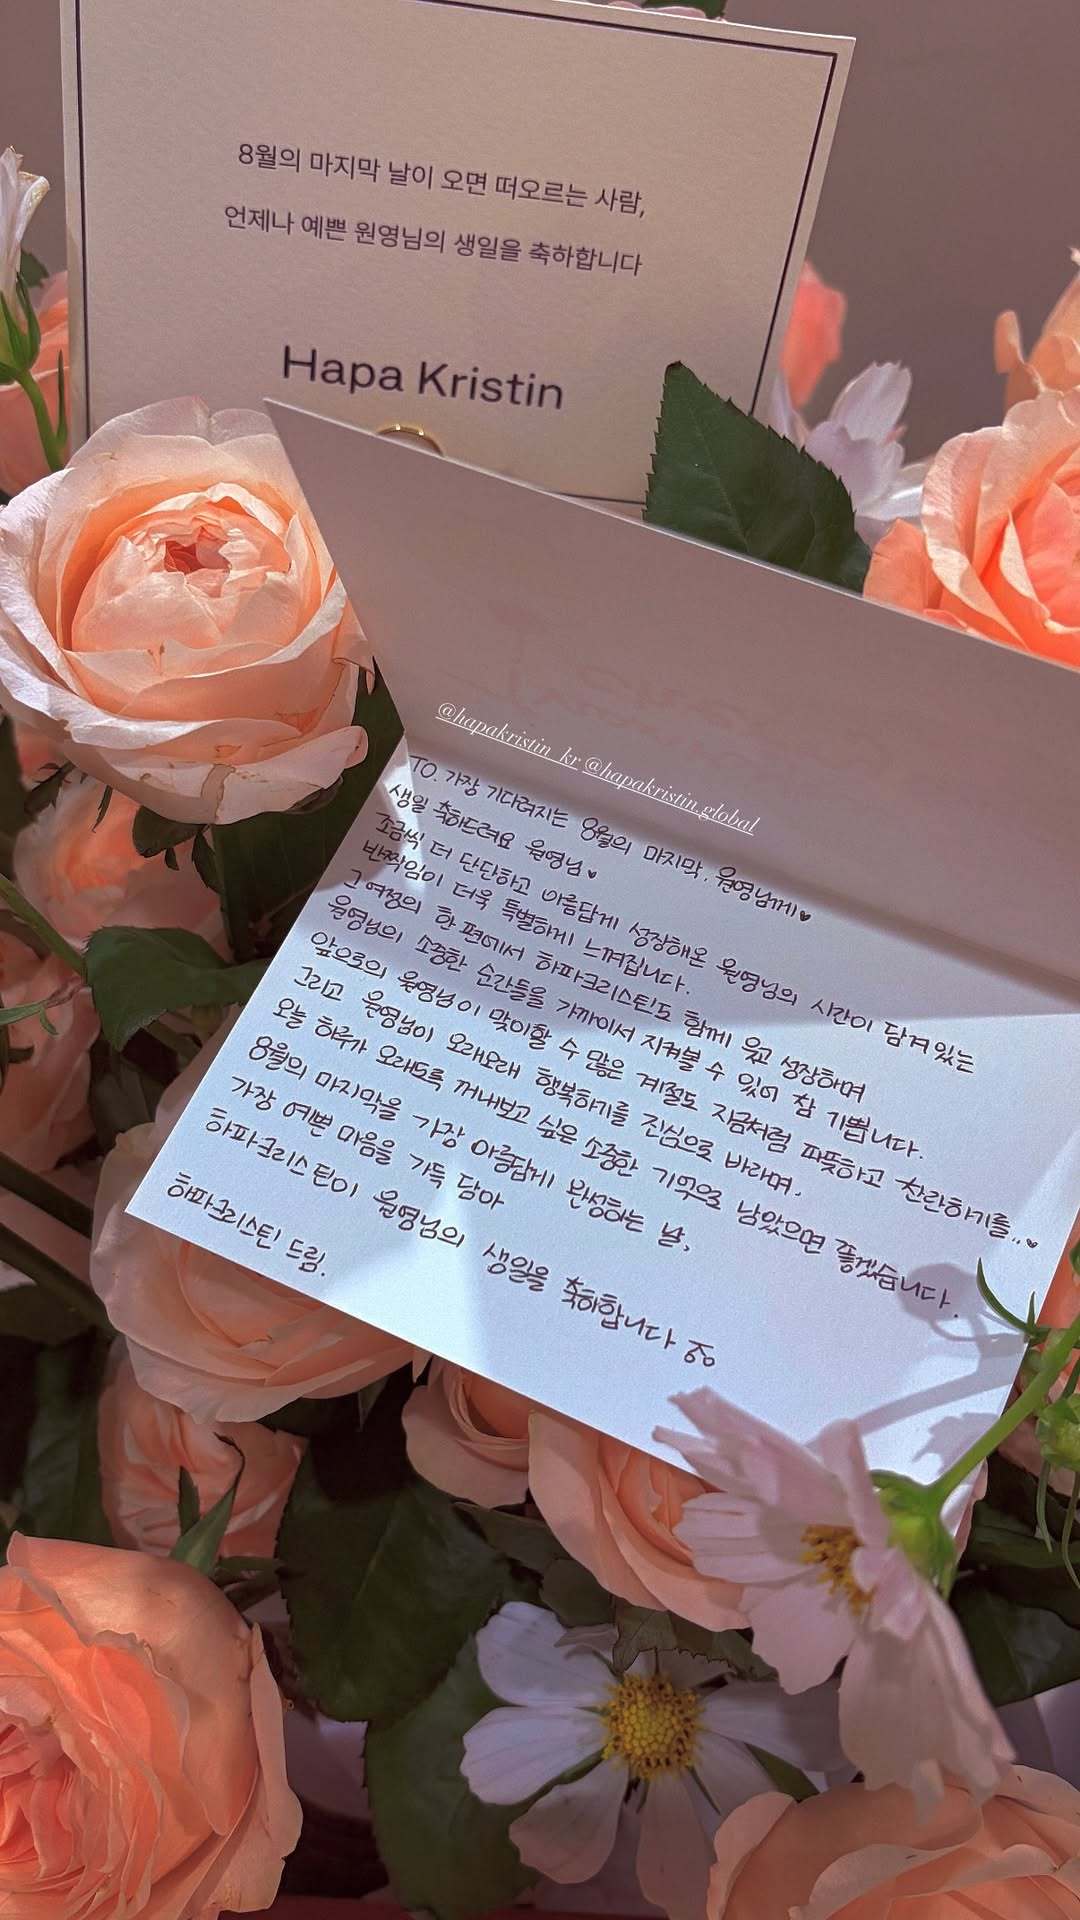 8월의 마지막 날이 오면 떠오르는 사람,
언제나 예쁜 원영님의 생일을 축하합니다
Hapa Kristin
@hapakristin_kr @hapakristin.global
TO. 가장 기다려지는 8월의 마지막, 원영님께♥
생일 축하드려요 원영님♥
조금씩 더 단단하고 아름답게 성장해온 원영님의 시간이 담겨있는
반짝임이 더욱 특별하게 느껴집니다.
그 여정의 한 편에서 하파크리스틴도 함께 웃고 성장하며
원영님의 소중한 순간들을 가까이서 지켜볼 수 있어 참 기쁩니다.
앞으로의 원영님이 맞이할 수 많은 계절도 지금처럼 따뜻하고 찬란하기를..♥
그리고 원영님이 오래오래 행복하기를 진심으로 바라며,
오늘 하루가 오래도록 꺼내보고 싶은 소중한 기억으로 남았으면 좋겠습니다.
8월의 마지막을 가장 아름답게 완성하는 날,
가장 예쁜 마음을 가득 담아
하파크리스틴이 원영님의 생일을 축하합니다
하파크리스틴 드림.